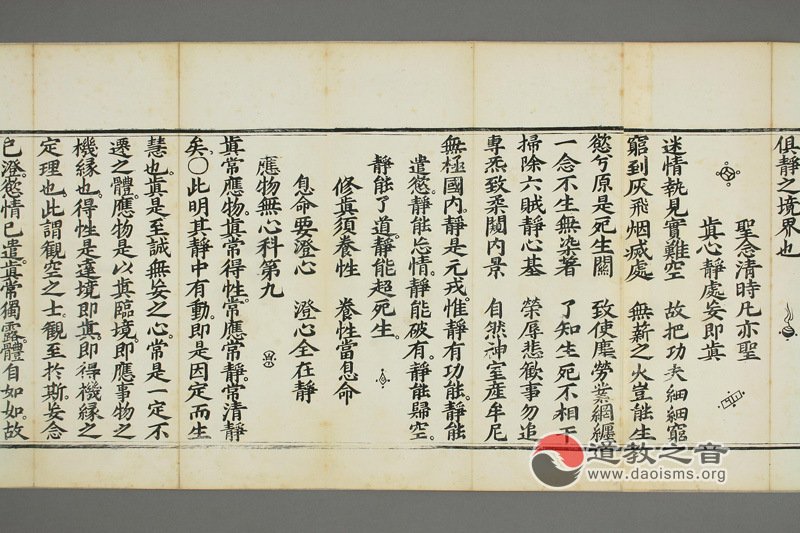 俱靜之境界也
聖念清時凡亦聖
真心靜處妄即真
迷情執見實難空 故把功夫細細窮
窮到灰飛烟滅處 無薪之火豈能生
慾兮原是死生關 致使塵勞業網纏
一念不生無染著 了知生死不相干
掃除六賊靜心基 榮辱悲歡事勿追
專炁致柔闚內景 自然神室産牟尼
無極國內。靜是元戎。惟靜有功能。靜能
遣慾靜能忘情。靜能破有。靜能歸空。
靜能了道。靜能超死生。
修真須養性 養性當息命
息命要澄心 澄心全在靜
應物無心科第九
真常應物。真常得性。常應常靜。常清靜
矣。○此明其靜中有動。即是因定而生
慧也。真是至誠無妄之心。常是一定不
遷之體。應物是以真臨境。即應事物之
機緣也。得性是達境即真。即得機緣之
定理也。此謂觀空之士。觀至於斯。妄念
已澄。慾情已遣。真常獨露。體自如如。故
道教之音
www.daoisms.org